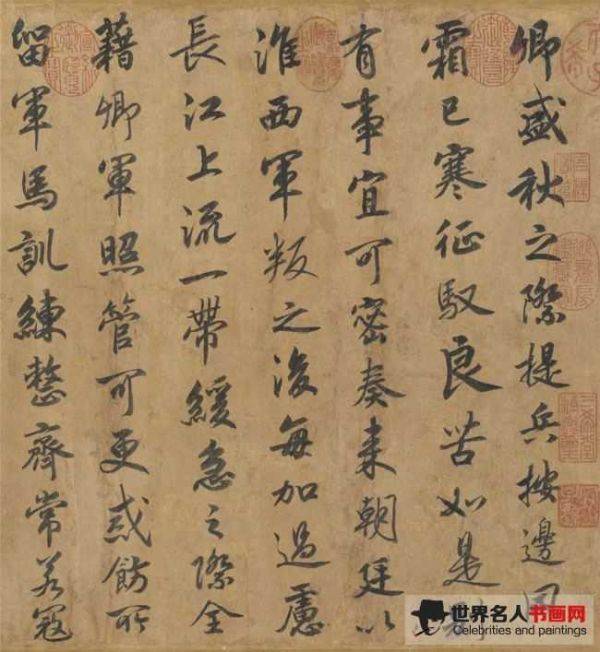 卿盛秋之際提兵按邊風
霜已寒征馭良苦如是別
有事宜可密奏来朝廷以
淮西軍叛之後每加過慮
長江上流一帶緩急之際全
藉卿軍照管可更戒飭所
留軍馬訓練整齊常若寇
世界名人书画网
Celebrities and paintings